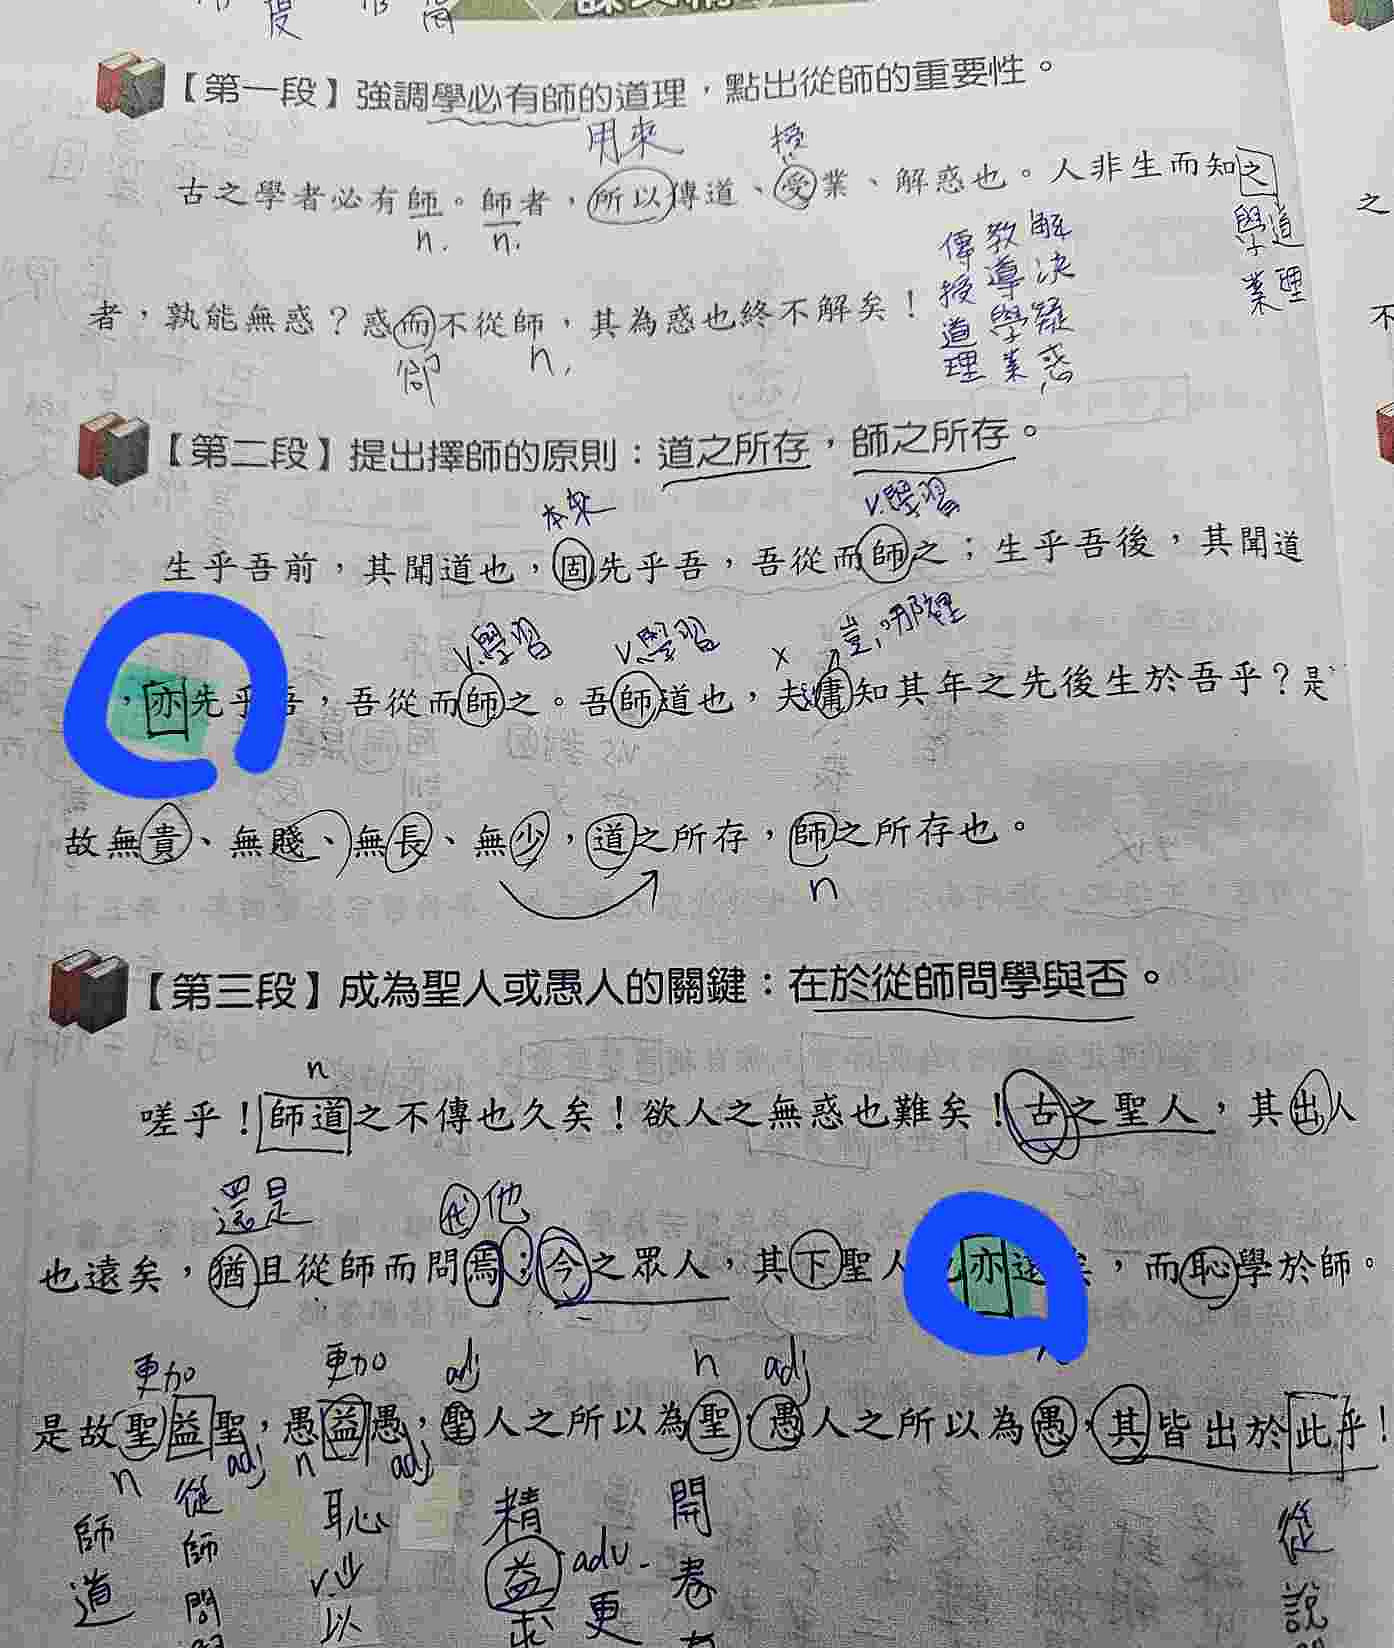 【第一段】強調學必有師的道理，點出從師的重要性。
用來 授
古之學者必有師。師者，所以傳道、受業、解惑也。人非生而知之
n. n.
傳授道理 教導學業 解決疑惑
學業 道理
者，孰能無惑？惑而不從師，其為惑也終不解矣！
卻 n.
【第二段】提出擇師的原則：道之所存，師之所存。
本來 v.學習
生乎吾前，其聞道也，固先乎吾，吾從而師之；生乎吾後，其聞道
v.學習 v.學習 x 豈，哪裡
，亦先乎吾，吾從而師之。吾師道也，夫庸知其年之先後生於吾乎？是
故無貴、無賤、無長、無少，道之所存，師之所存也。
n
【第三段】成為聖人或愚人的關鍵：在於從師問學與否。
n
嗟乎！師道之不傳也久矣！欲人之無惑也難矣！古之聖人，其出人
還是 代他
也遠矣，猶且從師而問焉；今之眾人，其下聖人也亦遠矣，而恥學於師。
更加 更加 adj n adj
是故聖益聖，愚益愚，聖人之所以為聖，愚人之所以為愚，其皆出於此乎！
n adj n adj
師道
從師問
恥
以
精益求
adv.
更
開卷有
從
說